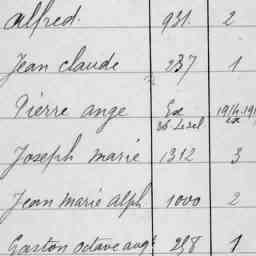 Alfred. 931. 2
Jean Claude 237 1
Pierre ange Ex
Joseph Marie 1312 3
Jean Marie Alph 1000 2
Gaston Octave aug 238 1